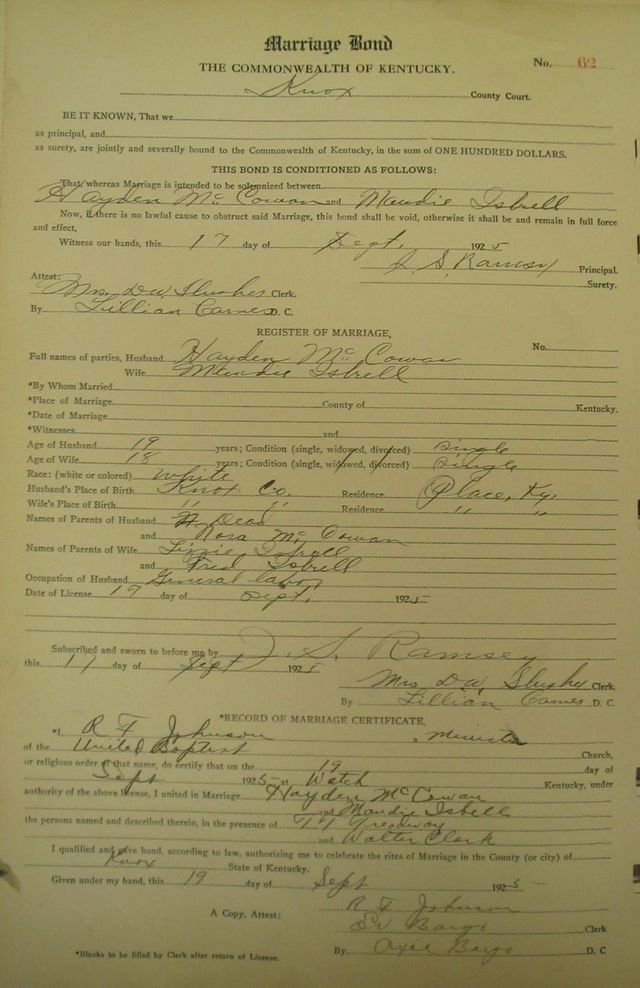 Marriage Bond
THE COMMONWEALTH OF KENTUCKY.
No. 62
Knox County Court.
BE IT KNOWN, That we
as principal, and
as surety, are jointly and severally bound to the Commonwealth of Kentucky, in the sum of ONE HUNDRED DOLLARS.
THIS BOND IS CONDITIONED AS FOLLOWS:
That, whereas Marriage is intended to be solemnized between
Hayden McCowan and Maudie Isbell
Now, if there is no lawful cause to obstruct said Marriage, this bond shall be void, otherwise it shall be and remain in full force
and effect,
Witness our hands, this 17 day of Sept, 1925
J. S. Ramsey Principal.
Surety.
Attest:
Mrs. D W Slusher Clerk.
By Lillian Carnes D. C.
REGISTER OF MARRIAGE,
No.
Full names of parties, Husband Hayden McCowan
Wife Maudie Isbell
*By Whom Married
*Place of Marriage County of Kentucky.
*Date of Marriage
*Witnesses and
Age of Husband 19 years; Condition (single, widowed, divorced) Single
Age of Wife 18 years; Condition (single, widowed, divorced) Single
Race: (white or colored) White
Husband's Place of Birth Knox Co. Residence Place, Ky.
Wife's Place of Birth " " Residence " "
Names of Parents of Husband Dead
and Nora McCowan
Names of Parents of Wife Lizzie Isbell
and Fred Isbell
Occupation of Husband General labor
Date of License 17 day of Sept. 1925
Subscribed and sworn to before me by J. S. Ramsey
this 17 day of Sept 1925
Mrs D W Slusher Clerk.
By Lillian Carnes D. C.
*RECORD OF MARRIAGE CERTIFICATE,
*I, R F Johnson, Minister
of the United Baptist Church,
or religious order of that name, do certify that on the 19 day of
Sept 1925 at Wotch Kentucky, under
authority of the above license, I united in Marriage Hayden McCowan
and Maudie Isbell
the persons named and described therein, in the presence of Treadway
and Walter Clark
I qualified and gave bond, according to law, authorizing me to celebrate the rites of Marriage in the County (or city) of
Knox State of Kentucky.
Given under my hand, this 19 day of Sept 1925
R F Johnson
A Copy, Attest: Ed Bargo Clerk
By Bargo D. C
*Blanks to be filled by Clerk after return of License.